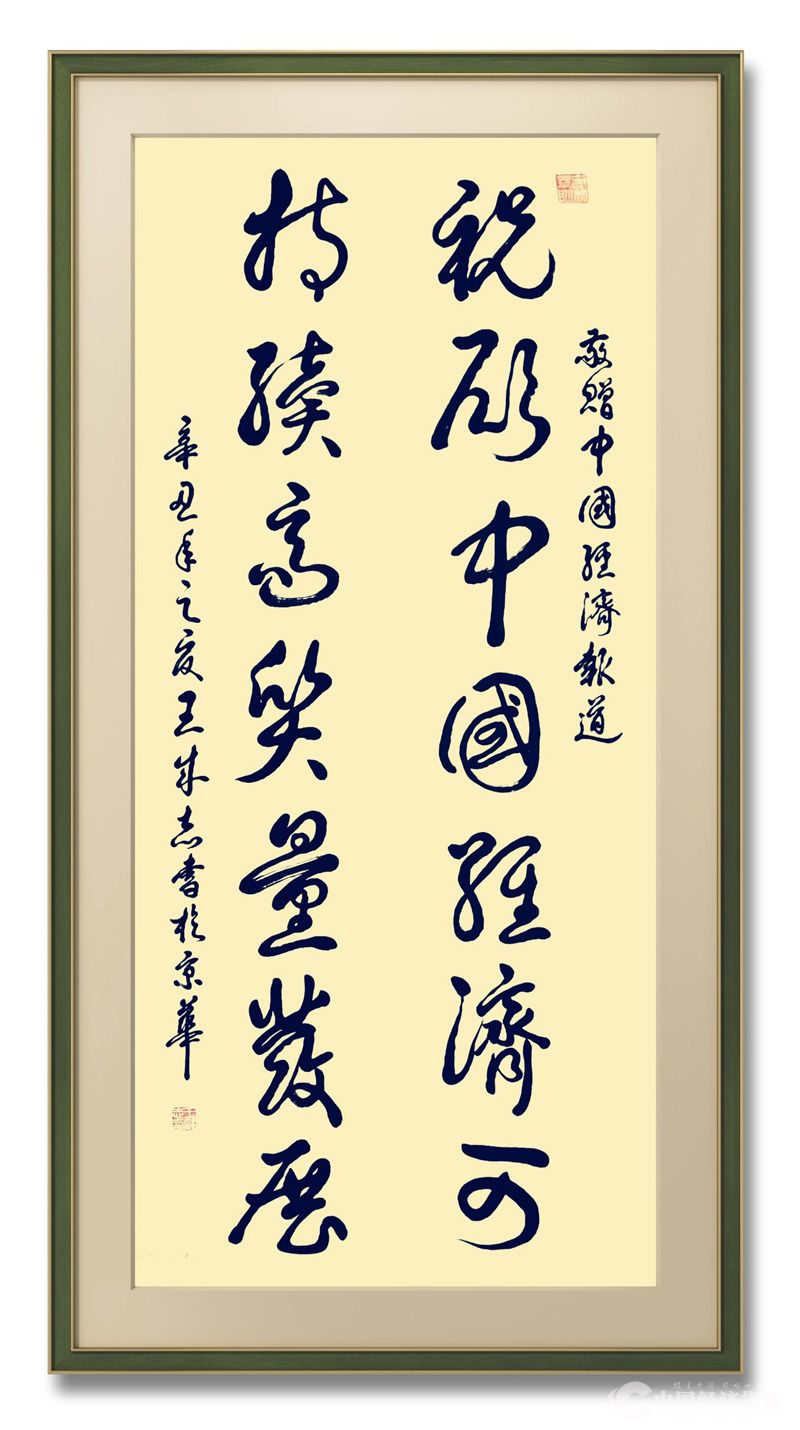 敬贈中國經濟報道
祝願中國經濟可
持續高質量發展
辛丑年之夏王成志書於京華
中国经济报道